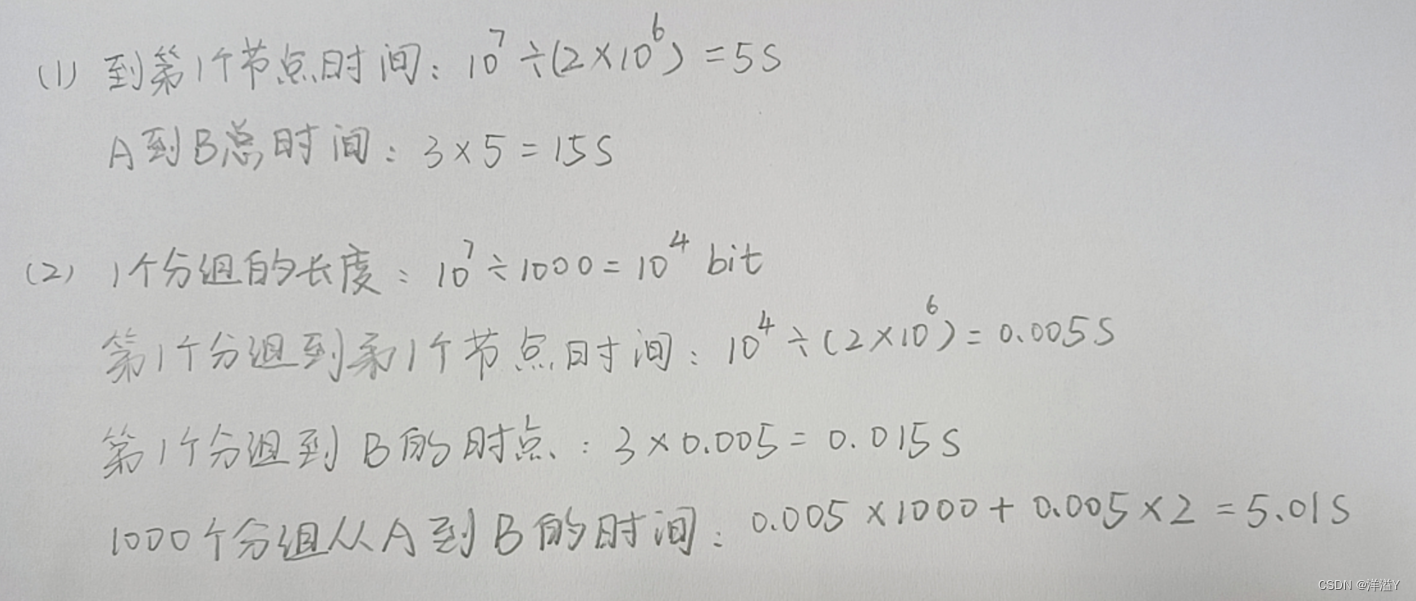 (1) 到第1个节点时间：10⁷÷(2×10⁶)=5S
A到B总时间：3×5=15S
(2) 1个分组的长度：10⁷÷1000=10⁴ bit
第1个分组到第1个节点时间：10⁴÷(2×10⁶)=0.005S
第1个分组到B的时点：3×0.005=0.015S
1000个分组从A到B的时间：0.005×1000+0.005×2=5.01S
CSDN @洋溢Y